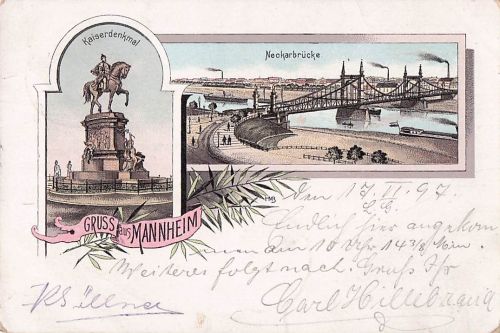 Kaiserdenkmal
Neckarbrücke
GRUSS aus MANNHEIM
den 17.II.97.
Endlich hier angekom
men um 10 Uhr 14 3/8 Min.
Weiteres folgt nach. Gruss Ihr
Carl Hillebrand